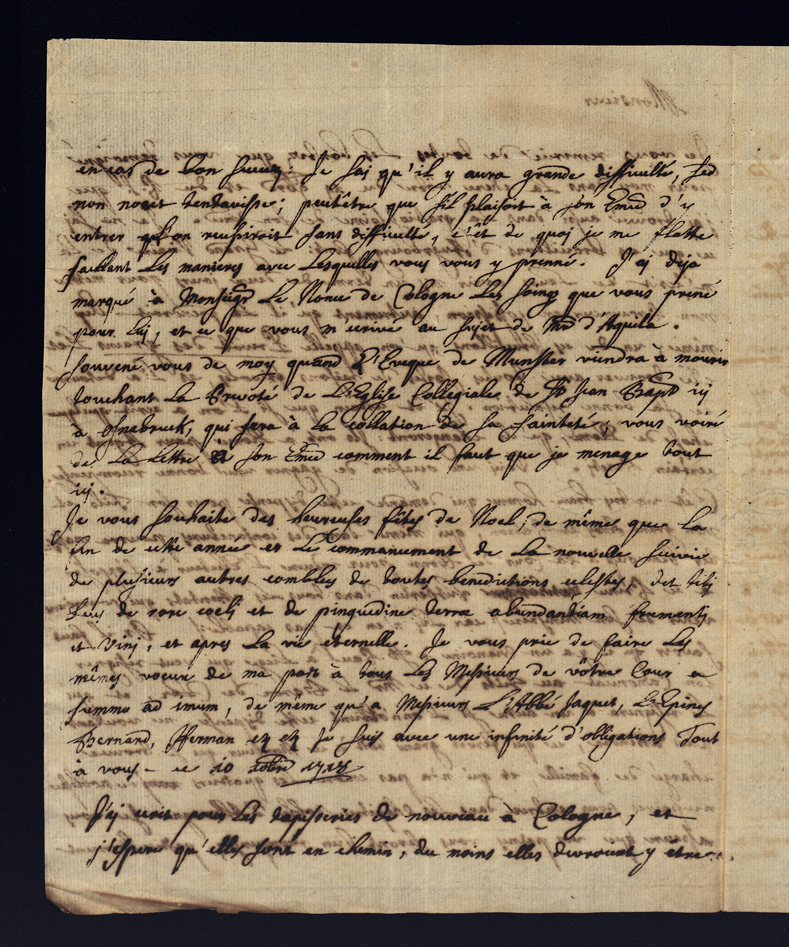 en cas de bon succez. Je sai qu'il y aura grande difficulté, sed
non nocet tentavisse; peutêtre que s'il plaisoit à son Emce d'y
entrer qu'on reussiroit sans difficulté, c'êt de quoi je me flatte
sachant les manieres avec lesquelles vous vous y prenné. J'ai deja
marqué à Monseigr le Nonce de Cologne les soins que vous prené
pour lui, et ce que vous m'ecrivé au sujet de d'Aquila.
Souvené vous de moy quand l'Eveque de Munster viendra à mourir
touchant la Prevoté de L'Eglise Collegiale de St Jean Bapt icj
à Osnabruck, qui sera à la collation de sa Sainteté; vous voiré
de la lettre à son Emce comment il faut que je menage tout
icj.
Je vous souhaite des heureuses fétes de Noel, de même que la
fin de cette année et le commancement de la nouvelle suivie
de plusieurs autres combles de toutes benedictions celestes, det tibj
Deus de rore coeli et de pinguedine terra abundantiam frumentj
et vinj, et apres la vie eternelle. Je vous prie de faire les
mêmes voeux de ma part à tous les Messieurs de vôtre Cour a
summo ad imum, de même qu'a Messieurs L'Abbé Jaquet, L'Epines
Bernard, Herman etc etc je suis avec une infinité d'obligations Tout
à vous - ce 10 xbre
J'ai ecrit pour les tapisseries de nouveau à Cologne, et
j'espere qu'elles sont en chemin, du moins elles devroient y étre.